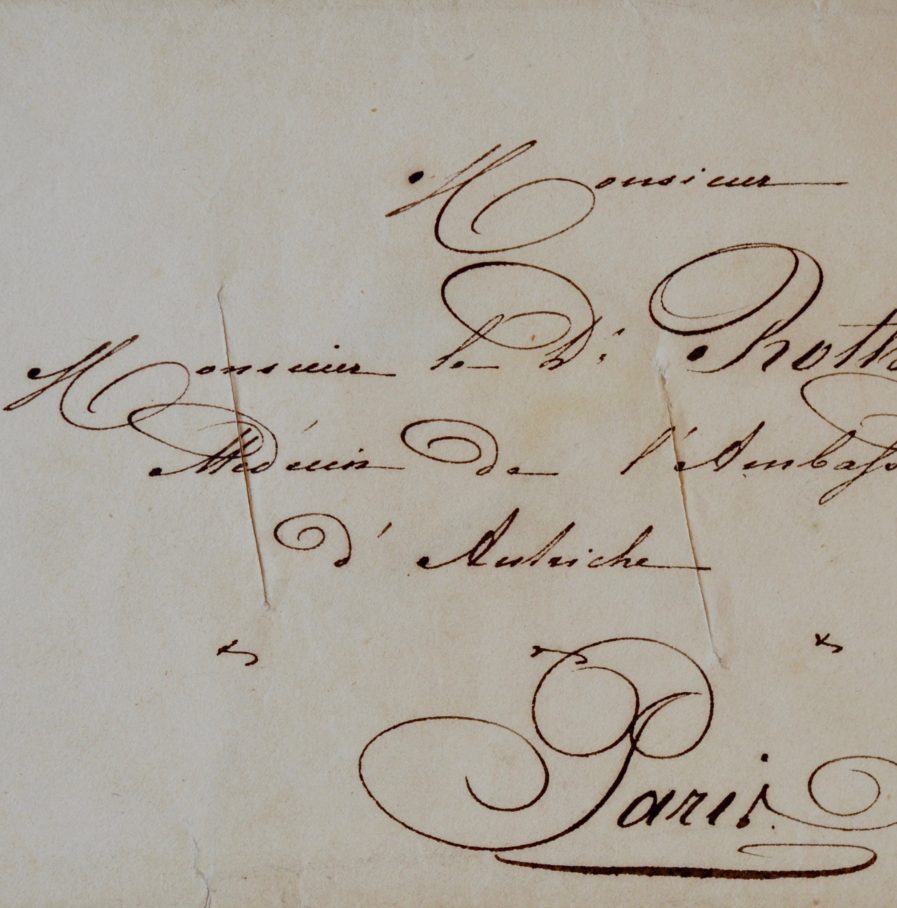 Monsieur
Monsieur le Dr. Rott
Médecin de l'Ambass
d'Autriche
Paris.